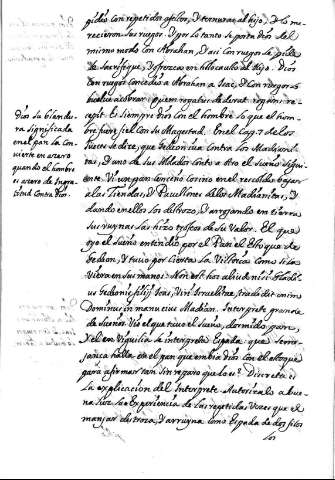 pidió con repetidos afectos, y ternuras al hijo, y lo me
recieron sus ruegos. y por lo tanto se porta dios del
mismo modo con Abrahan, y asi con ruegos le pide
le sacrifique, y ofrezca en holocausto al hijo. Dios
con ruegos concedio a Abrahan a Isac, y con ruegos
buelve a cobrar
repit. Es siempre dios con el hombre lo que el hom
bre fiere fiel con su Magestad. En el Cap. 7 de los
Jueces se dice, que Gedeon iva contra los Madiani
tas, y uno de sus soldados conto a otro el sueño sigui
ente. Vi un pan
las Tiendas, y Pavellones de los Madianitas, y
dando en ellos los destrozo, y arrojando en tierra
sus ruynas las hizo trofeo de su valor. El que
oye el sueño entendio por el Pan el Estoque de
Gedeon, y tuvo por cierta la Victoria como si la
viera en sus manos: Non est hoc aliud nisi Gladi
us Gedeonis filij Ioas, viri Israelitae, tradidit enim
Dominus in manu eius Madian. Interprete
de sueños. Vio el que tuvo el sueño, dormido pan
y el en Vigilia la interpreta Espada que seme
janza halla en el pan que embia dios con el estoque
para afirmar tan sin reparo que lo es? Discreta es
la explicacion del Interprete
na luz la Experiencia de las repetidas Vezes que el
manjar destroza, y arruyna como Espada de dos filos
los
Dios su blandu
ra significada
en el pan la con
vierte en azero
quando el hombre
es azero de Ingra
titud contra Dios.